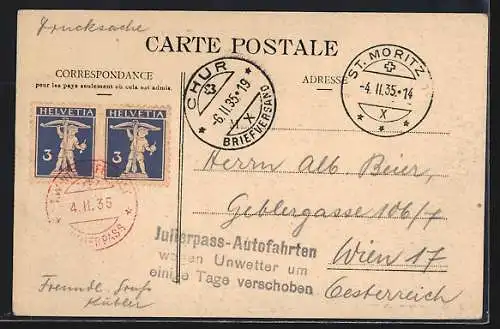 Drucksache
CARTE POSTALE
CORRESPONDANCE
pour les pays seulement où cela est admis.
ADRESSE
HELVETIA
3
HELVETIA
3
4.II.35
JULIERPASS
CHUR
-6.II.35.•19
X
BRIEFVERSAND
ST. MORITZ
-4.II.35.•14
X
Herrn Alb. Beier,
Geblergasse 106/7
Wien 17
Oesterreich
Julierpass-Autofahrten
wegen Unwetter um
einige Tage verschoben
Freundl. Gruss